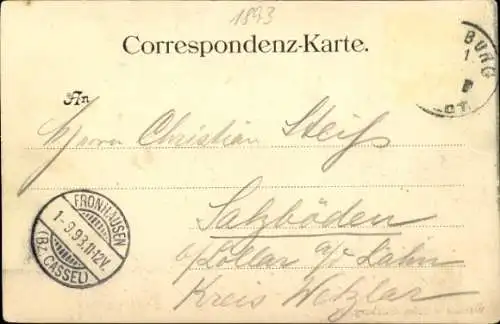 1893
BURG
1
Correspondenz-Karte.
An
Herrn Christian Steiß
Salzböden
b/Lollar a/d Lahn
Kreis Wetzlar
FRONHAUSEN
1-9.93.11-12V.
(BZ. CASSEL)